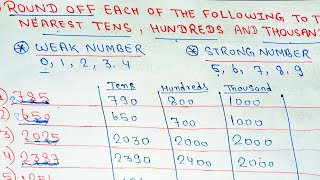 ROUND OFF EACH OF THE FOLLOWING TO T
NEAREST TENS, HUNDREDS AND THOUSAN
WEAK NUMBER STRONG NUMBER
0, 1, 2, 3. 4 5, 6, 7, 8. 9
Tens Hundreds Thousand
1) 785 790 800 1000
2) 650 650 700 1000
3) 2025 2030 2000 2000
4) 2387 2390 2400 2000